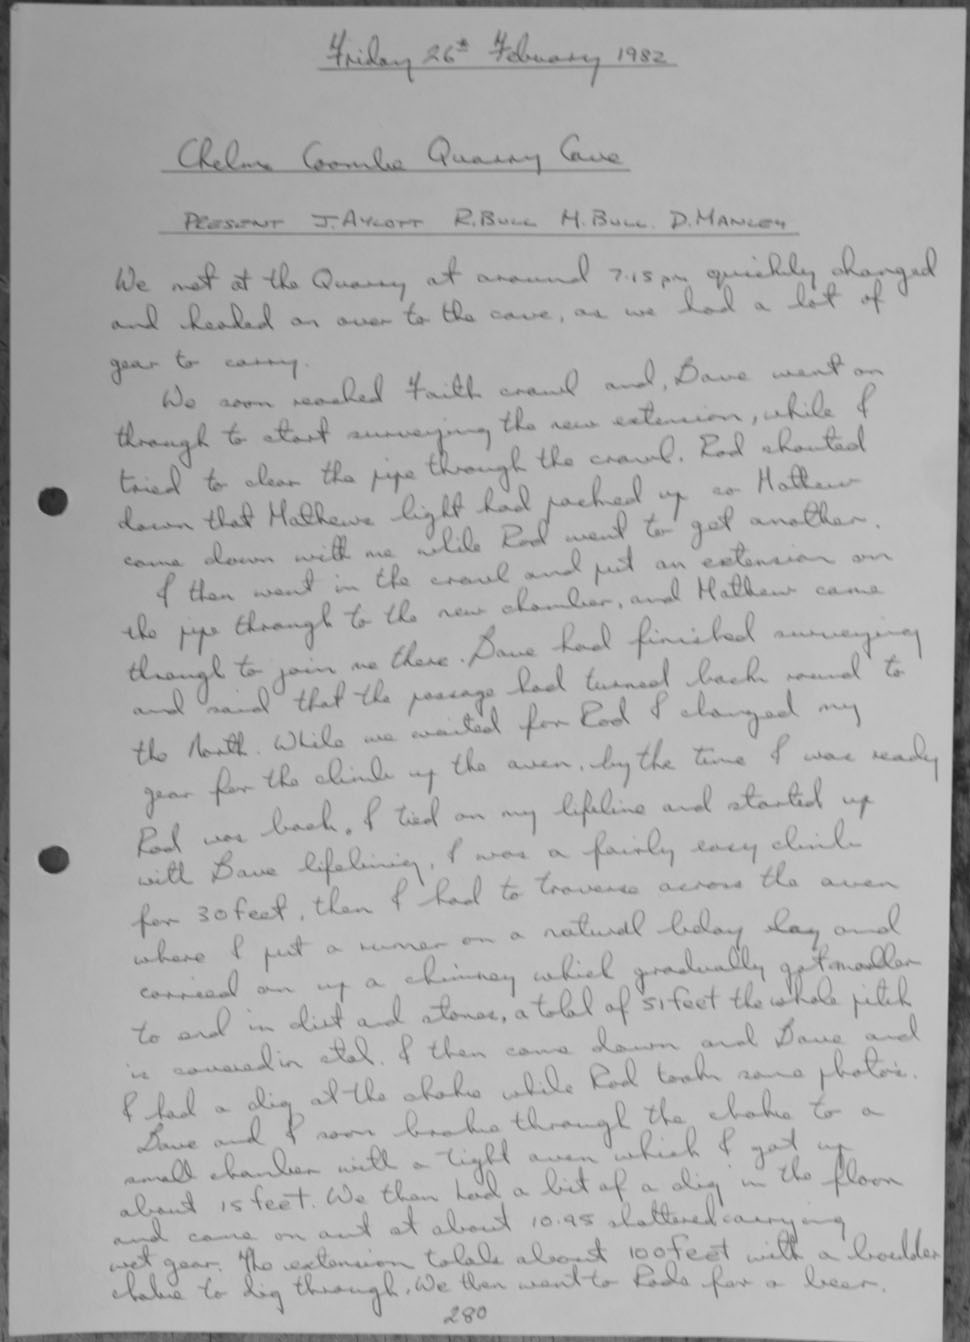 Friday 26th February 1982
Chelms Coombe Quarry Cave
PRESENT J. AYLOTT R. BULL M. BULL. D. MANLEY
We met at the Quarry at around 7.15 pm quickly changed
and headed on over to the cave, as we had a lot of
gear to carry.
We soon reached Faith crawl and, Dave went on
through to start surveying the new extension, while I
tried to clear the pipe through the crawl. Rod shouted
down that Mathews light had packed up so Mathew
came down with me while Rod went to get another.
I then went in the crawl and put an extension on
the pipe through to the new chamber, and Mathew came
through to join me there. Dave had finished surveying
and said that the passage had turned back round to
the North. While we waited for Rod I changed my
gear for the climb up the aven, by the time I was ready
Rod was back. I tied on my lifeline and started up
with Dave lifelining, I was a fairly easy climb
for 30 feet, then I had to traverse across the aven
where I put a runner on a natural belay and
carried on up a chimney which gradually got smaller
to end in dirt and stones, a total of 51 feet the whole pitch
is covered in stal. I then came down and Dave and
I had a dig at the choke while Rod took some photo's.
Dave and I soon broke through the choke to a
small chamber with a tight aven which I got up
about 15 feet. We then had a bit of a dig in the floor
and came on out at about 10.45 shattered carrying
wet gear. The extension totals about 100 feet with a boulder
choke to dig through. We then went to Rods for a beer.
280